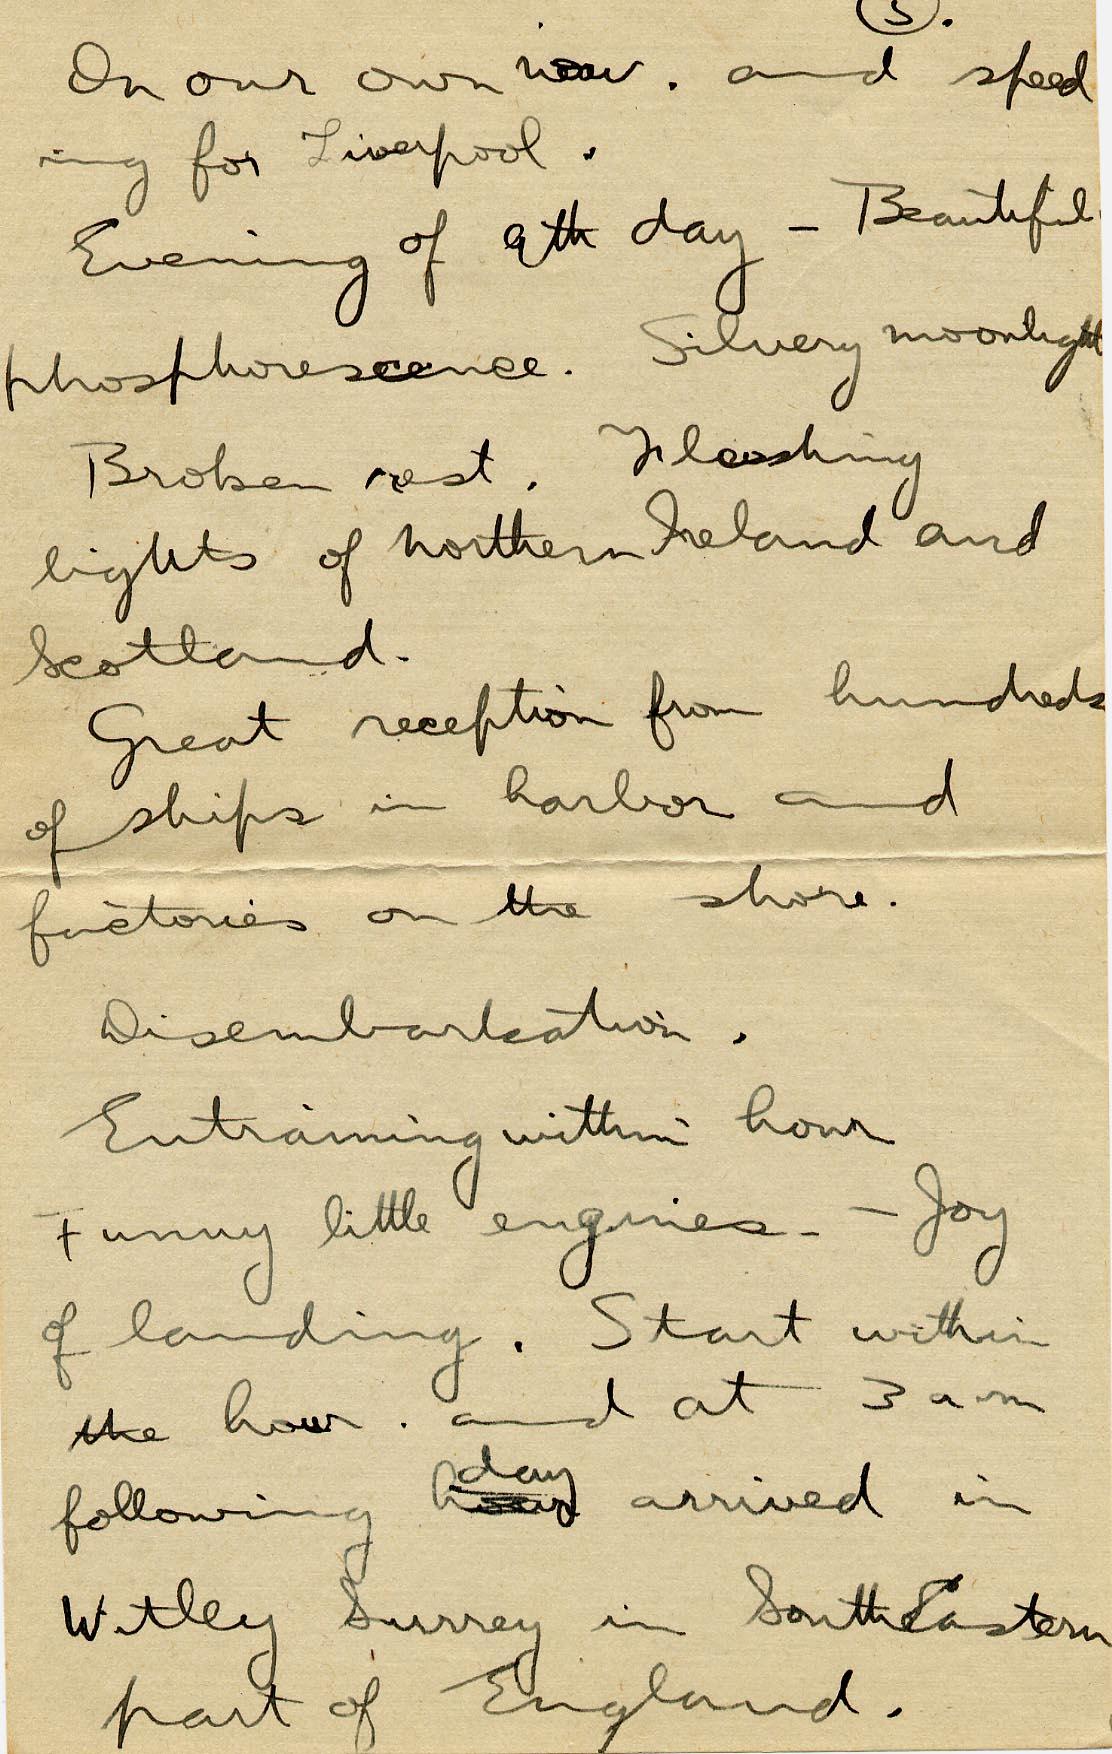 (3).
On our own now. and speed
ing for Liverpool.
Evening of 9th day - Beautiful
phosphorescence. Silvery moonlight
Broken rest. Flashing
lights of northern Ireland and
Scotland.
Great reception from hundreds
of ships in harbor and
factories on the shore.
Disembarkation.
Entraining within hour
Funny little engines - Joy
of landing. Start within
the hour. and at 3 am
day
following hour arrived in
Witley Surrey in South Eastern
part of England.